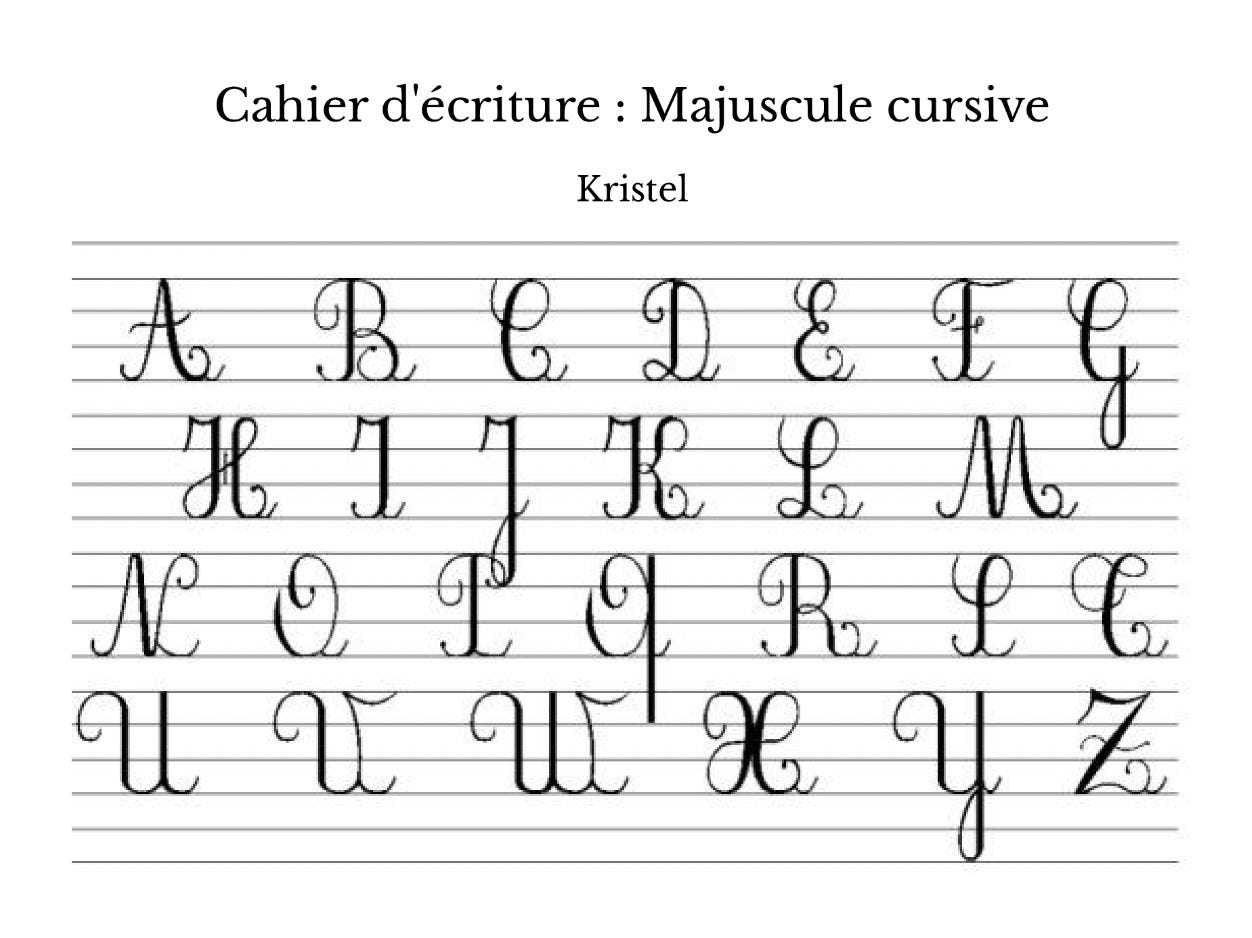 Cahier d'écriture : Majuscule cursive
Kristel
A B C D E F G
H I J K L M
N O P Q R S T
U V W X Y Z